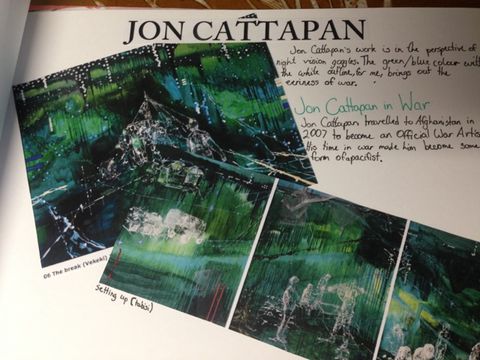 JON CATTAPAN
Jon Cattapan's work is in the perspective of
night vision goggles. The green/blue colour with
the white outline, for me, brings out the
eeriness of war.
Jon Cattapan in War
Jon Cattapan travelled to Afghanistan in
2007 to become an Official War Artis
His time in war made him become some
form of a pacifist.
06 The break (Vekeki)
Setting up (tabisi)